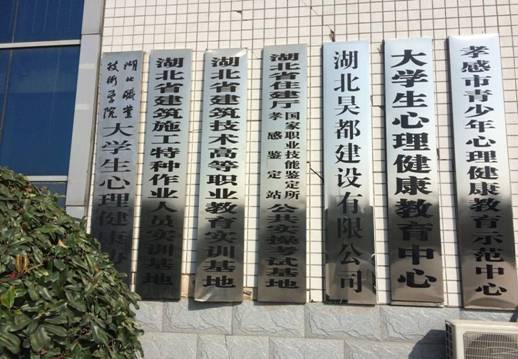 湖北职业
技术学院
大学生心理健康
湖北省建筑施工特种作业人员实训基地
湖北省建筑技术高等职业教育实训基地
湖北省住建厅
国家职业技能鉴定所
孝感鉴定站
公共实操考试基地
湖北昊都建设有限公司
大学生心理健康教育中心
孝感市青少年心理健康教育示范中心